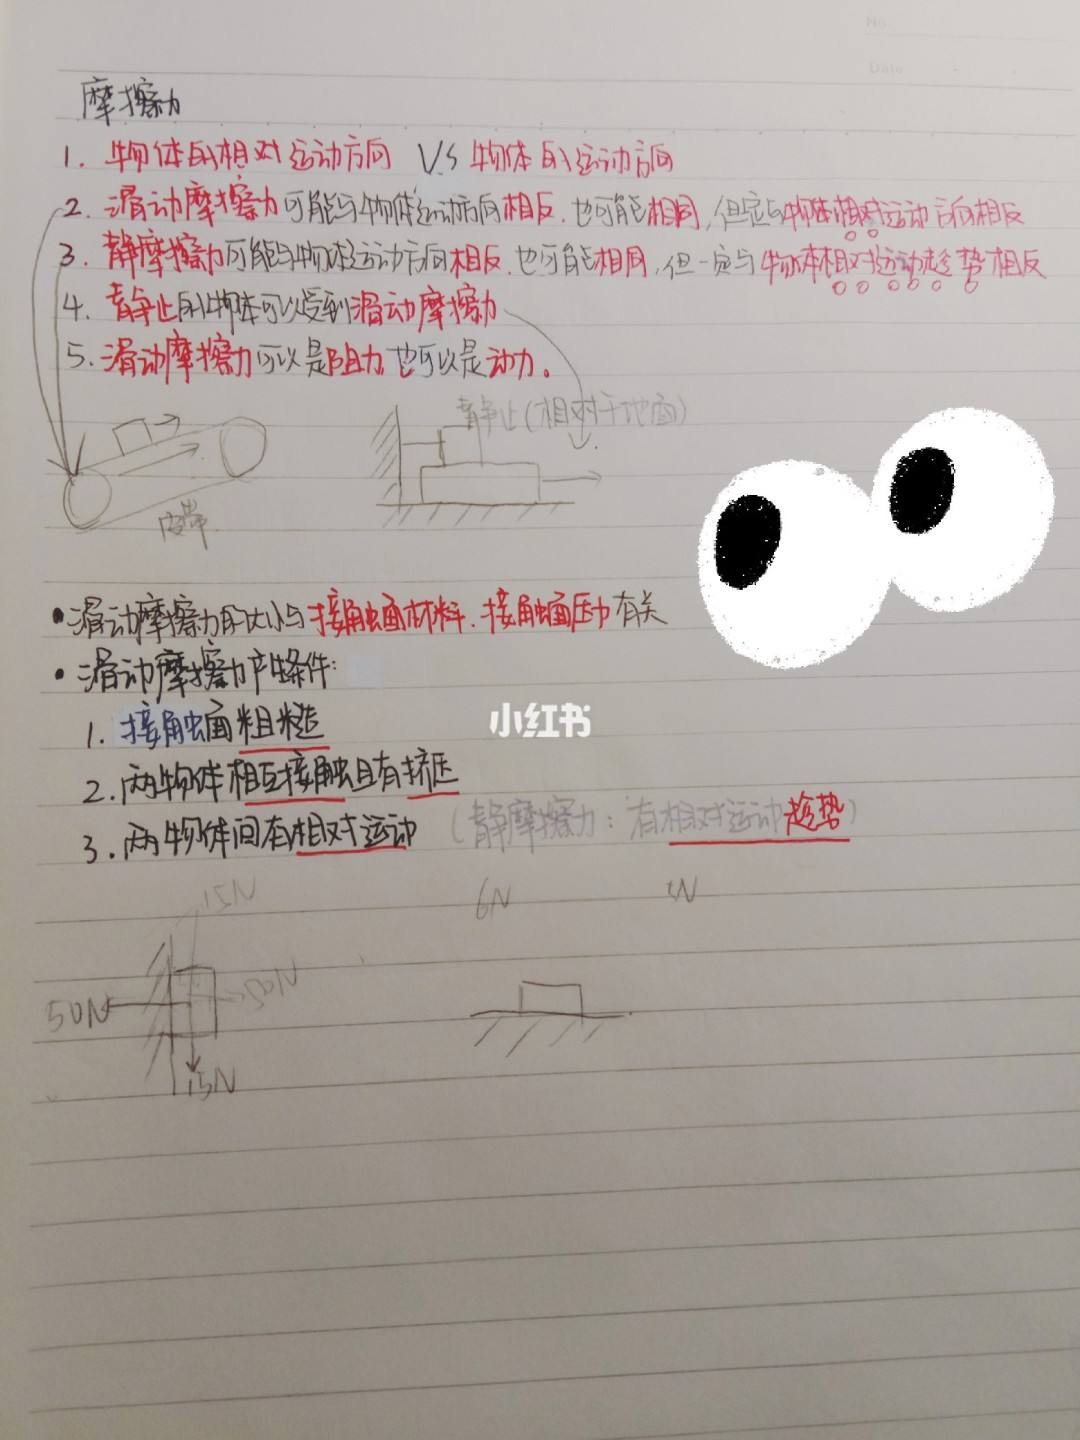 No
Date
摩擦力
1. 物体的相对运动方向 VS 物体的运动方向
2. 滑动摩擦力可能与物体运动方向相反,也可能相同,但定与物体相对运动方向相反
3. 静摩擦力可能与物体运动方向相反,也可能相同,但一定与物体相对运动趋势相反
4. 静止的物体可以受到滑动摩擦力
5. 滑动摩擦力可以是阻力也可以是动力。
静止(相对于地面)
皮带
•滑动摩擦力的大小与接触面材料、接触面压力有关
•滑动摩擦力产生条件:
1. 接触面粗糙
小红书
2. 两物体相互接触且有挤压
3. 两物体间有相对运动 (静摩擦力:有相对运动趋势)
15N 6N N
50N 50N
15N